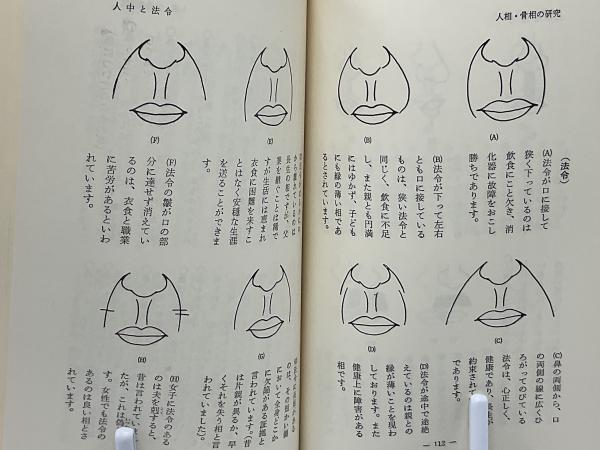 人相・骨相の研究
(法令)
(A)法令が口に接して
狭く下っているのは
飲食にこと欠き、消
化器に故障をおこし
勝ちであります。
(A)
(B)法令が下って左右
とも口に接している
ものは、狭い法令と
同じく、飲食に不足
し、また親とも円満
にはゆかず、子ども
にも縁の薄い相であ
るとされています。
(B)
(C)鼻の両側から、口
の両側の線に広くひ
ろがってのびている
法令は、心正しく、
健康であり、
約束されて
であります。
(C)
(D)法令が途中で途絶
えているのは親との
縁が薄いことを現わ
しております。また
健康上に障害がある
相です。
(D)
— 113 —
人中と法令
長生の相ですが、父
業を継ぐことは稀で
すが生活には恵まれ
衣食に困難を来すこ
とはなく安穏な生涯
を送ることができま
す。
(E)
(F)法令の皺が口の部
分に達せず消えてい
るのは、衣食と職業
に苦労があるといわ
れています。
(F)
において全身どこか
に欠陥がある証拠と
言われています。(昔
は片親が異るか、早
くそれを失う相と言
われていました)。
(G)
(H)女子に法令のある
のは夫を剋すると、
昔は言われていまし
たが、これは
す。女性でも法令の
あるのは良い相とさ
れています。
(H)